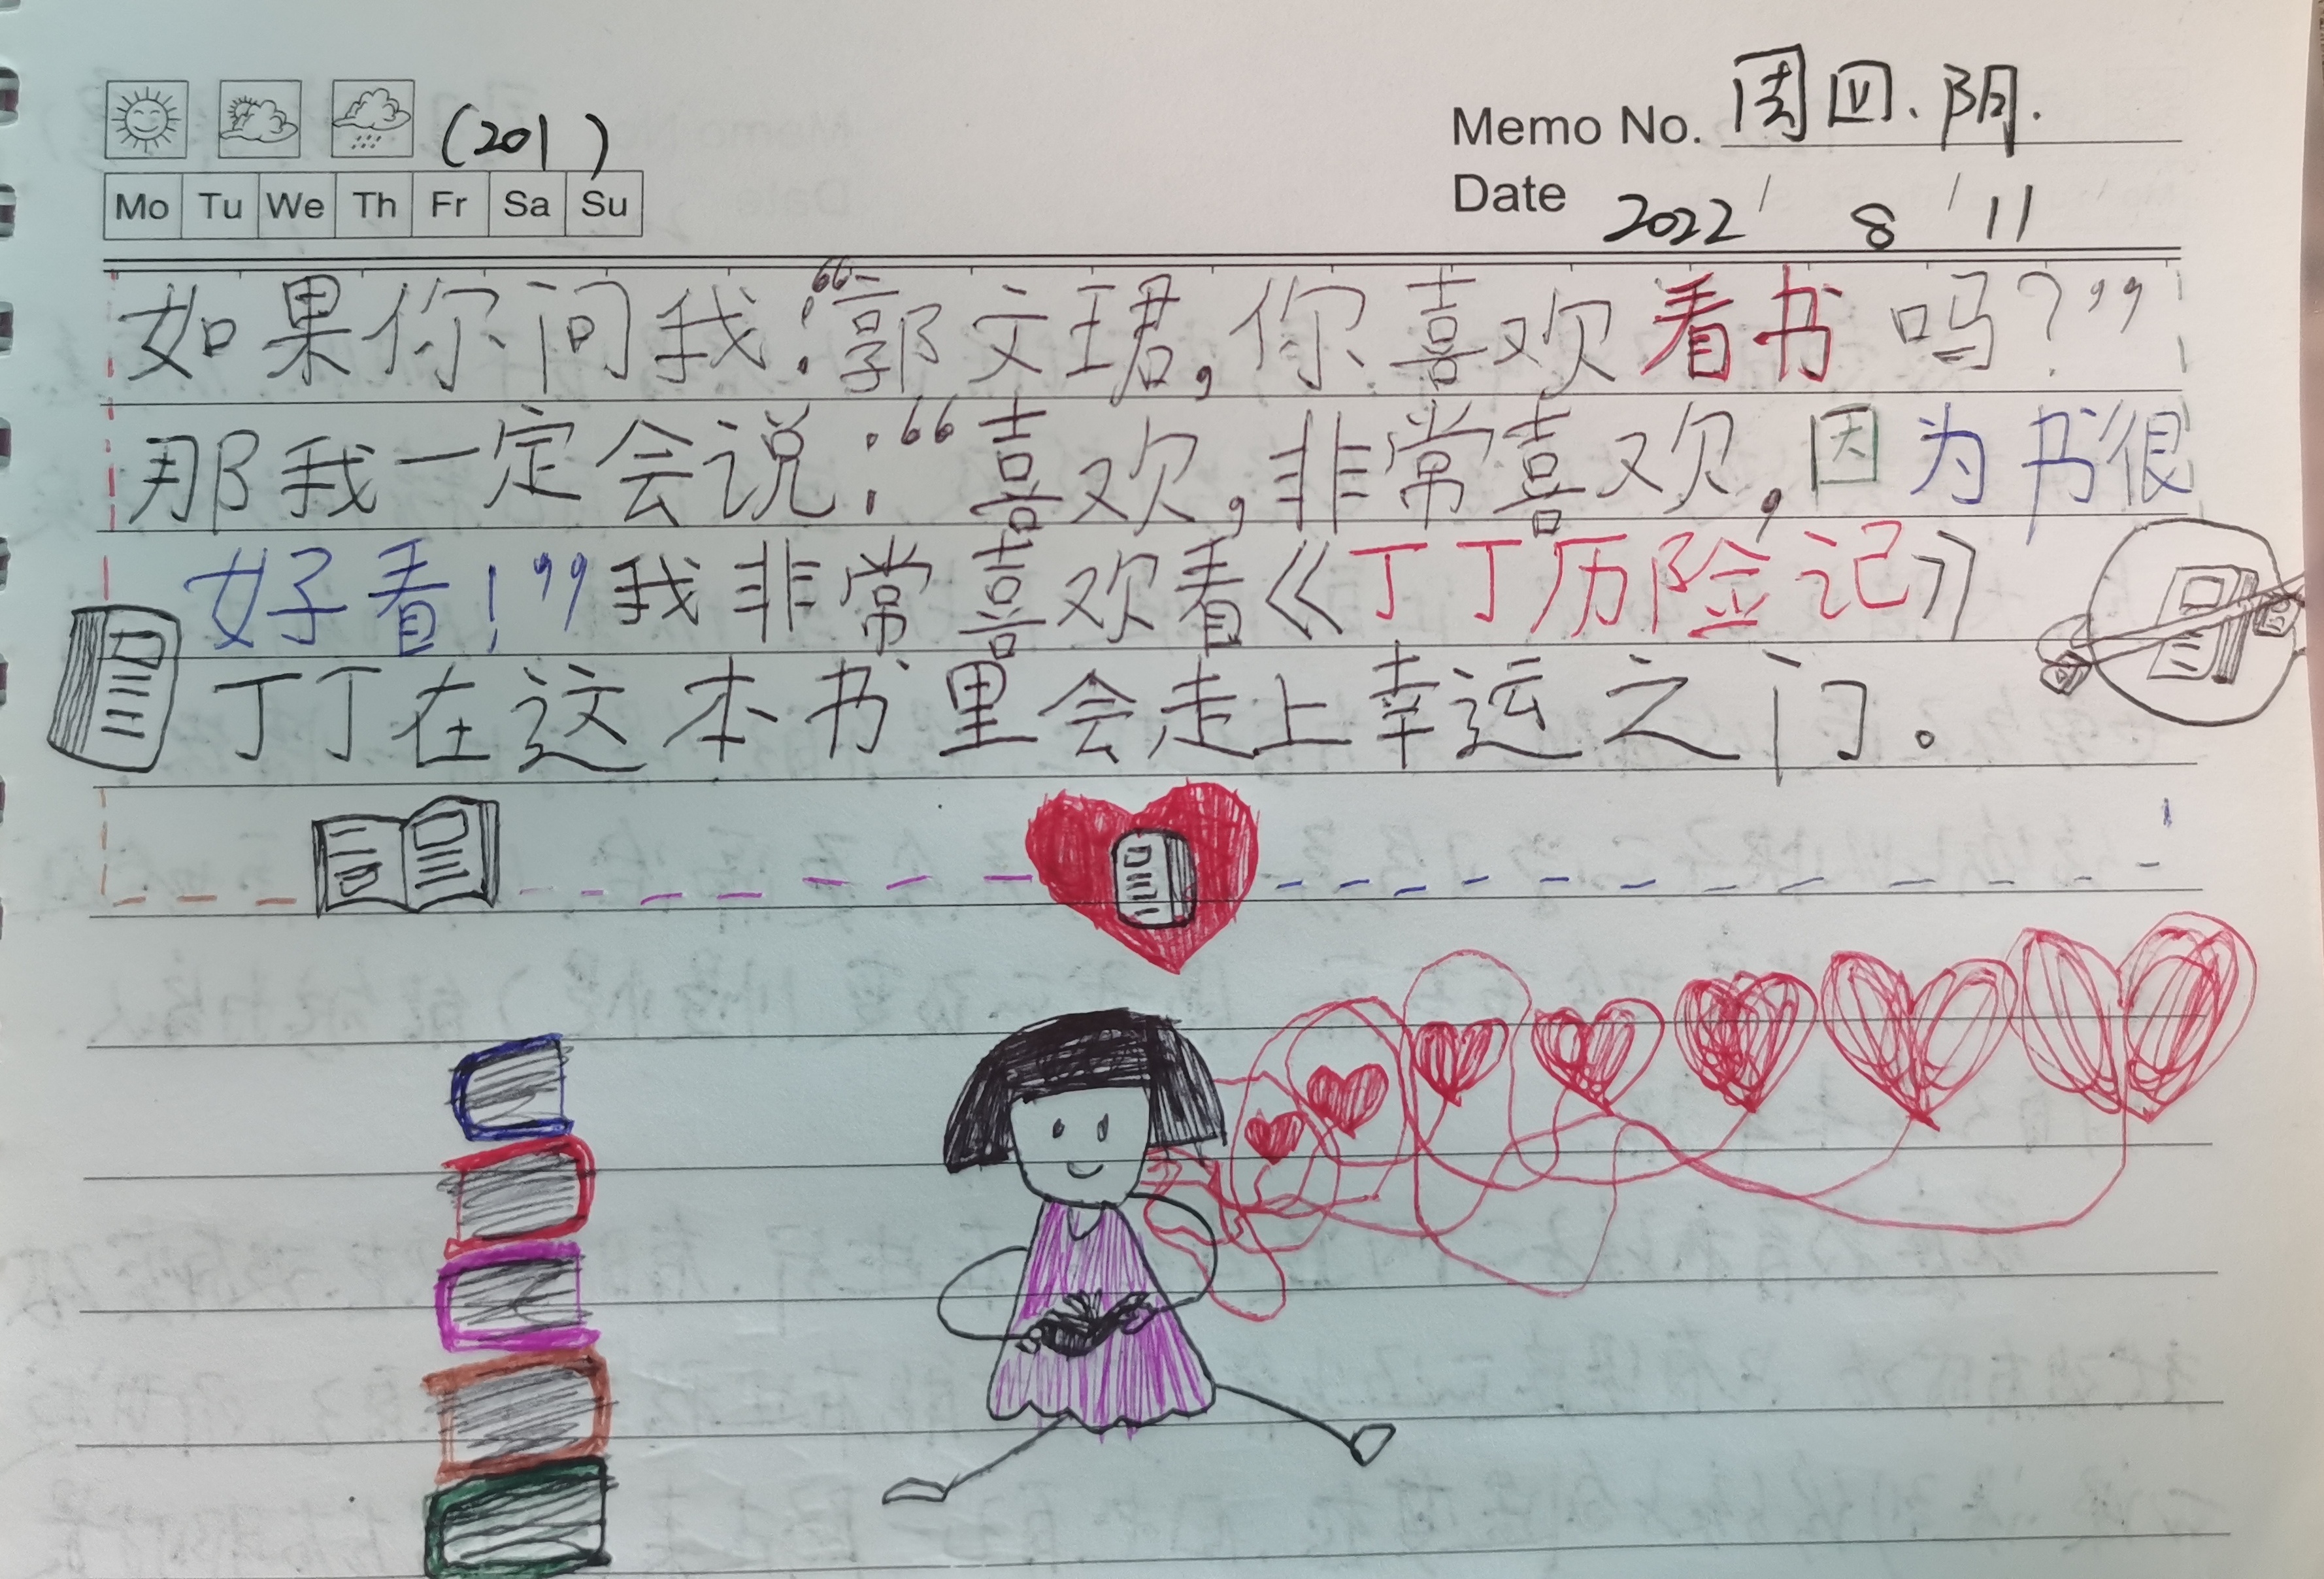 (201)
Memo No. 周四.阴.
Mo Tu We Th Fr Sa Su
Date 2022 / 8 / 11
如果你问我:“郭文珺,你喜欢看书吗?”
那我一定会说:“喜欢,非常喜欢,因为书很
好看!”我非常喜欢看《丁丁历险记》
丁丁在这本书里会走上幸运之门。